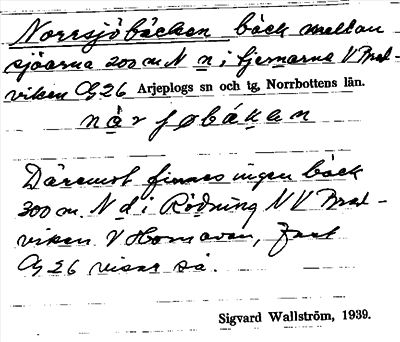 Norrsjöbäcken bäck mellan
sjöarna 200 m N n i tjernarna V Brad-
viken G 26 Arjeplogs sn och tg, Norrbottens län.
Däremot finnes ingen bäck
300 m. N d i Rödning N V Brad-
viken V Hornavan, fast
G 26 visar så.
Sigvard Wallström, 1939.